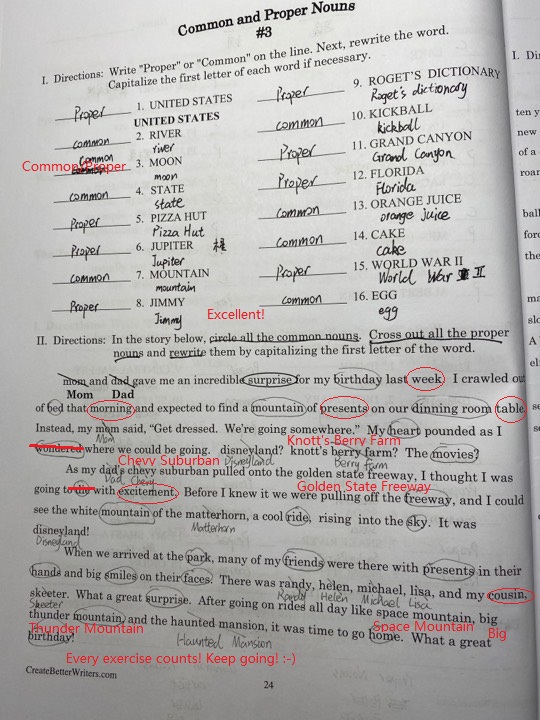 Common and Proper Nouns
#3
I. Directions: Write "Proper" or "Common" on the line. Next, rewrite the word.
Capitalize the first letter of each word if necessary.
Proper 1. UNITED STATES
UNITED STATES
common 2. RIVER
river
Common
Common/Proper
3. MOON
moon
common 4. STATE
state
Proper 5. PIZZA HUT
Pizza Hut
Proper 6. JUPITER
Jupiter
common 7. MOUNTAIN
mountain
Proper 8. JIMMY
Jimmy
Proper 9. ROGET'S DICTIONARY
Roget's dictionary
common 10. KICKBALL
kickball
Proper 11. GRAND CANYON
Grand Canyon
Proper 12. FLORIDA
Florida
Common 13. ORANGE JUICE
orange juice
common 14. CAKE
cake
Proper 15. WORLD WAR II
World War II
common 16. EGG
egg
Excellent!
II. Directions: In the story below, circle all the common nouns. Cross out all the proper
nouns and rewrite them by capitalizing the first letter of the word.
mom and dad gave me an incredible surprise for my birthday last week. I crawled out
Mom Dad
of bed that morning and expected to find a mountain of presents on our dinning room table.
Instead, my mom said, "Get dressed. We're going somewhere." My heart pounded as I
Mom
Knott's Berry Farm
wondered where we could be going. disneyland? knott's berry farm? The movies?
Chevy Suburban Disneyland Berry farm
As my dad's chevy suburban pulled onto the golden state freeway, I thought I was
Dad Chevy
Golden State Freeway
going to die with excitement. Before I knew it we were pulling off the freeway, and I could
see the white mountain of the matterhorn, a cool ride, rising into the sky. It was
Matterhorn
disneyland!
Disneyland
When we arrived at the park, many of my friends were there with presents in their
hands and big smiles on their faces. There was randy, helen, michael, lisa, and my cousin,
Randy Helen Michael Lisa
skeeter. What a great surprise. After going on rides all day like space mountain, big
Skeeter
Space Mountain Big
thunder mountain, and the haunted mansion, it was time to go home. What a great
Thunder Mountain
Haunted Mansion
birthday!
Every exercise counts! Keep going! :-)
CreateBetterWriters.com
24
I. Di
ten y
new
of a
roar
ball
forc
the
ma
slo
A
el